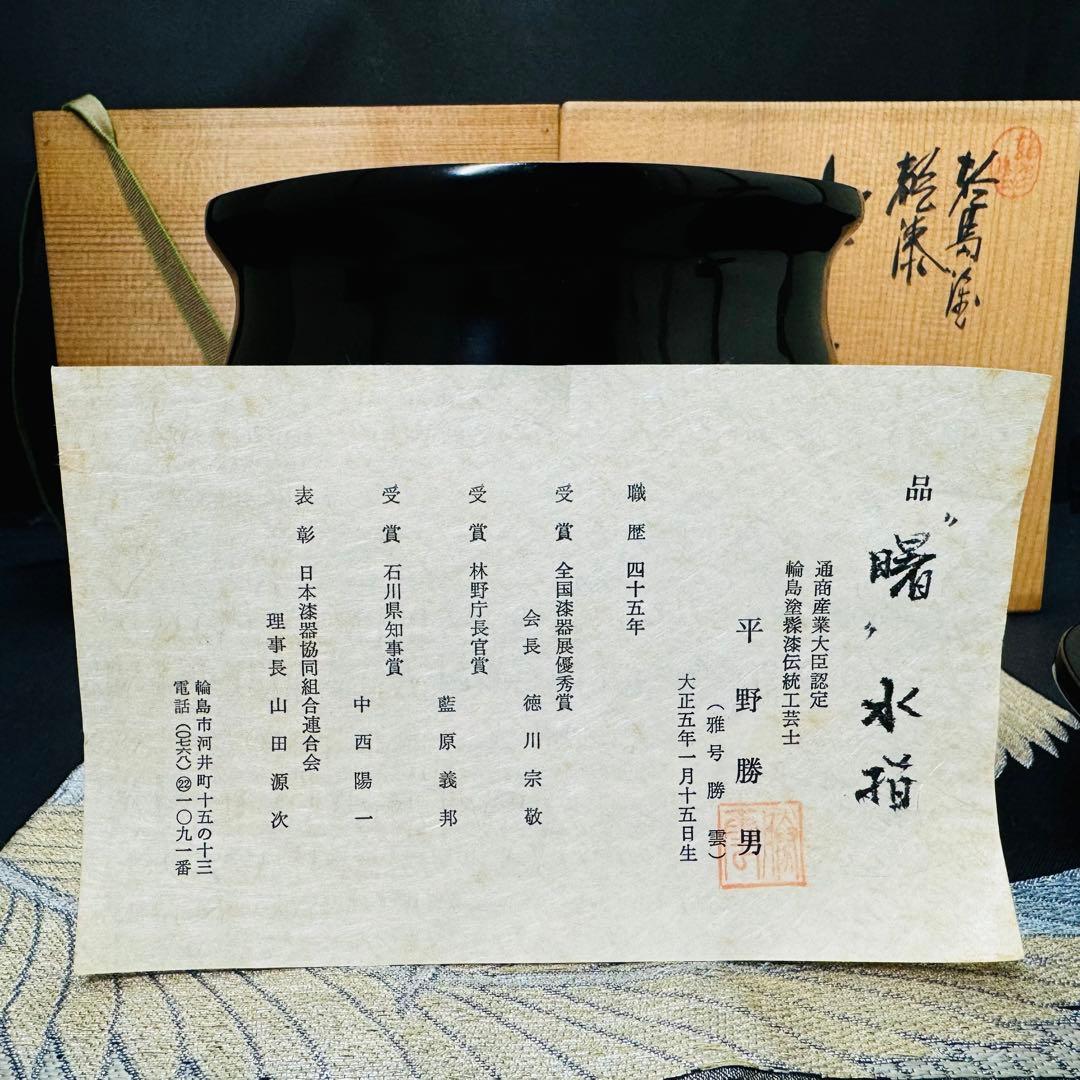 輪島塗
乾漆
品 "曙" 水指
通商産業大臣認定
輪島塗髹漆伝統工芸士
平野勝男
（雅号 勝雲）
大正五年一月十五日生
職歴 四十五年
受賞 全国漆器展優秀賞
会長 徳川宗敬
受賞 林野庁長官賞
藍原義邦
受賞 石川県知事賞
中西陽一
表彰 日本漆器協同組合連合会
理事長 山田源次
輪島市河井町十五の十三
電話（〇七六八）㉒一〇九一番